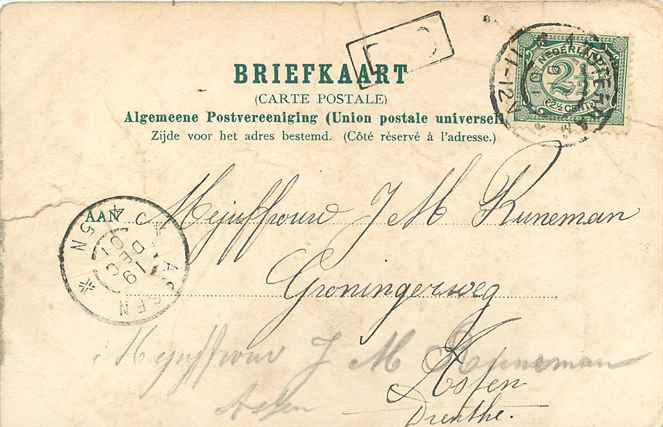 BRIEFKAART
(CARTE POSTALE)
Algemeene Postvereeniging (Union postale universel
Zijde voor het adres bestemd. (Côté réservé à l'adresse.)
NEDERLAND
2½
11-12V
AAN Mejuffrouw J M Runeman
Groningerweg
Assen
Drenthe.
Mejuffrouw J M Runeman
Assen
ASSEN
4-5N